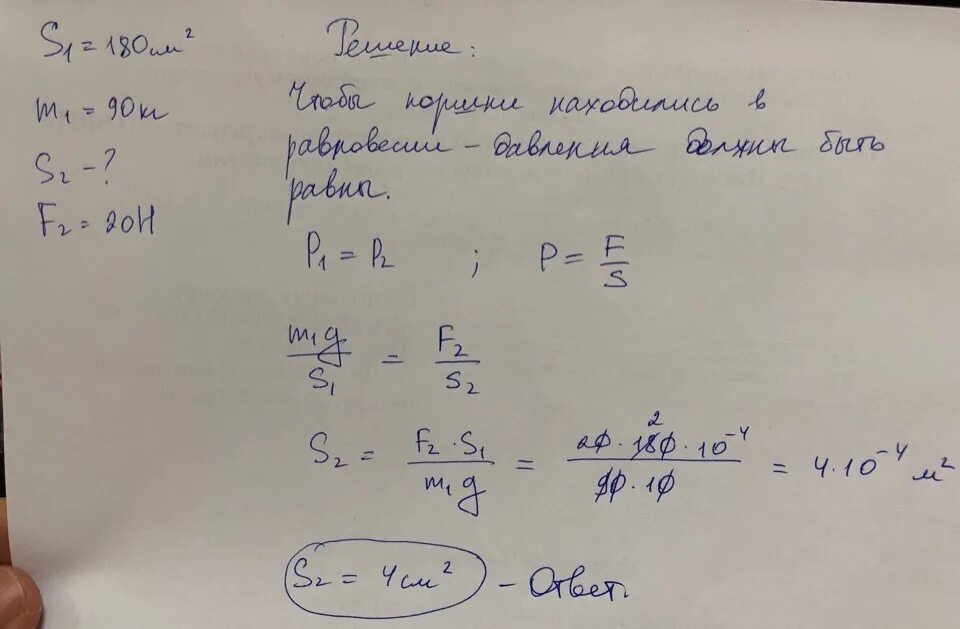 S₁ = 180 см²
m₁ = 90 кг
S₂ - ?
F₂ = 20Н
Решение:
Чтобы поршни находились в
равновесии - давления должны быть
равны.
P₁ = P₂ ; P = F/S
m₁g/S₁ = F₂/S₂
S₂ = F₂ · S₁/m₁g = 20 · 180 · 10⁻⁴/90 · 10 = 4 · 10⁻⁴ м²
2
S₂ = 4 см² - Ответ.